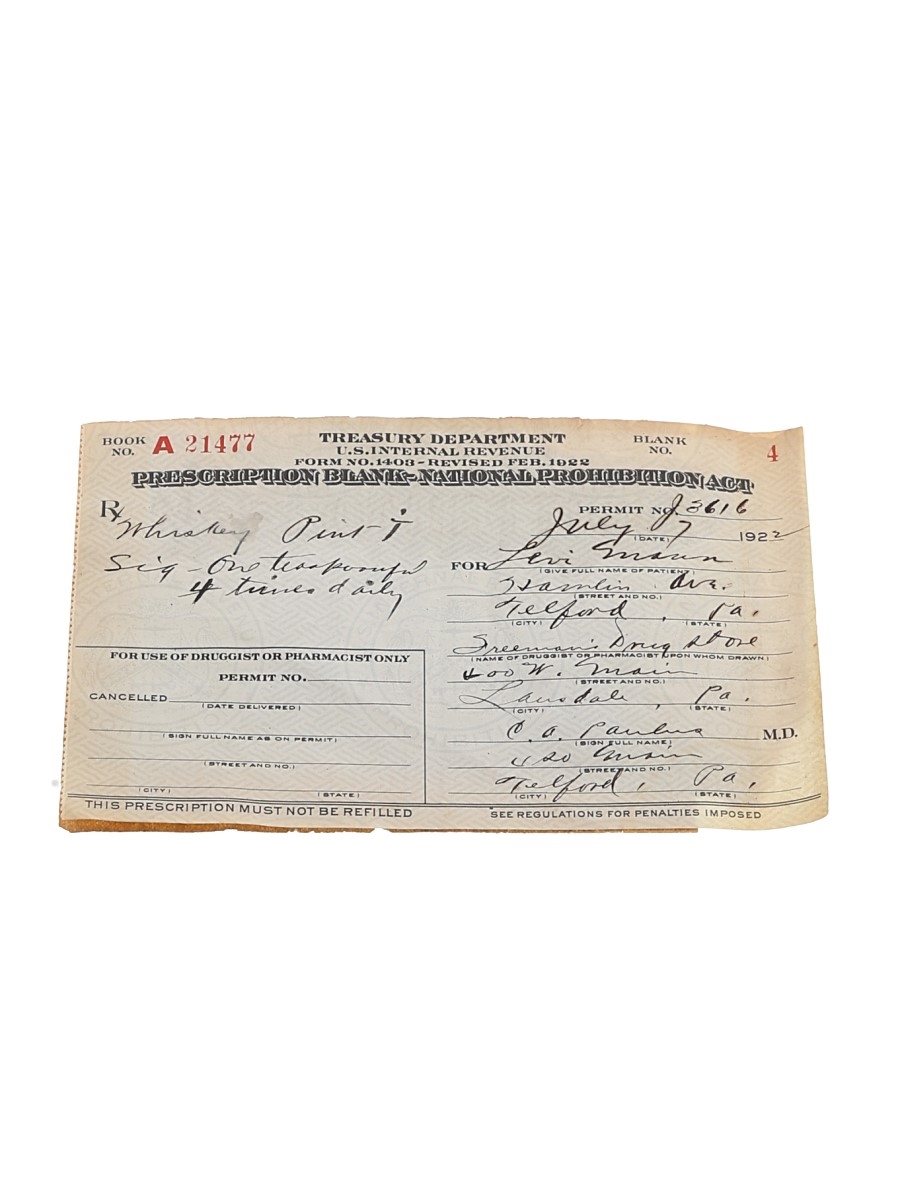 BOOK NO. A 21477
TREASURY DEPARTMENT
U.S. INTERNAL REVENUE
FORM NO. 1403 - REVISED FEB. 1922
BLANK NO. 4
PRESCRIPTION BLANK-NATIONAL PROHIBITION ACT
Rx
Whiskey Pint i
Sig - One teaspoonful
4 times daily
PERMIT NO. J. 3616
July 7 1922
(DATE)
FOR Levi Moyer
(GIVE FULL NAME OF PATIENT)
Hamlin Ave.
(STREET AND NO.)
Telford, Pa.
(CITY) (STATE)
Freeman's Drug Store
(NAME OF DRUGGIST OR PHARMACIST UPON WHOM DRAWN)
400 W. Main
(STREET AND NO.)
Lansdale, Pa.
(CITY) (STATE)
C. A. Paulus M.D.
(SIGN FULL NAME)
Main
(STREET AND NO.)
Telford, Pa,
(CITY) (STATE)
FOR USE OF DRUGGIST OR PHARMACIST ONLY
PERMIT NO.
CANCELLED
(DATE DELIVERED)
(SIGN FULL NAME AS ON PERMIT)
(STREET AND NO.)
(CITY) (STATE)
THIS PRESCRIPTION MUST NOT BE REFILLED
SEE REGULATIONS FOR PENALTIES IMPOSED